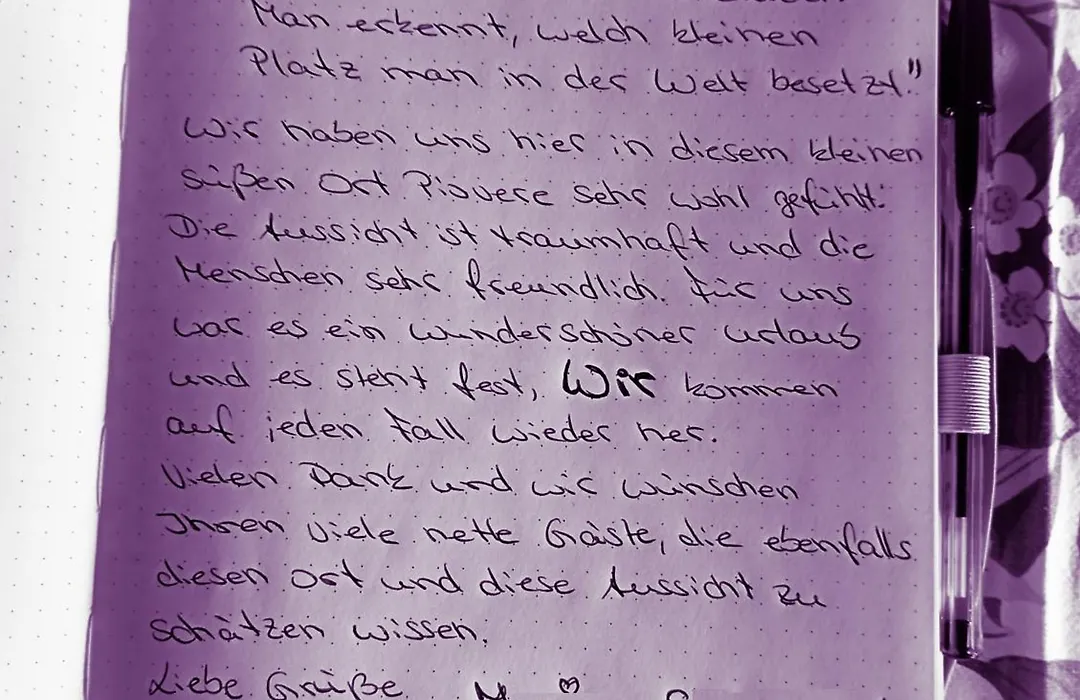 Man erkennt, welch kleinen
Platz man in der Welt besetzt."
Wir haben uns hier in diesem kleinen
süßen Ort Piovere sehr wohl gefühlt.
Die Aussicht ist traumhaft und die
Menschen sehr freundlich. Für uns
war es ein wunderschöner Urlaub
und es steht fest, Wir kommen
auf jeden Fall wieder her.
Vielen Dank und wir wünschen
Ihnen viele nette Gäste, die ebenfalls
diesen Ort und diese Aussicht zu
schätzen wissen.
Liebe Grüße